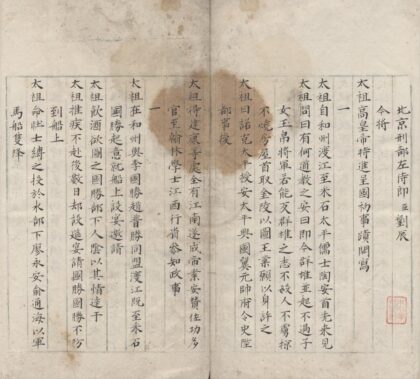 北京刑部左侍郎臣劉辰
今將
太祖高皇帝時進呈國初事蹟開寫
一
太祖自和州渡江至采石太平儒士陶安首先來見
太祖問曰有何道教之安曰即今群雄並起不過子
女玉帛將軍若能反群雄之志不殺人不虜掠
不燒房屋首取金陵以圖王業願以身許之
太祖曰諾克太平授安太平興國翼元帥府令史陞
都事後
太祖得建康有江南遂成帝業安贊佐功多
官至翰林學士江西行省參知政事
一
太祖在和州與李國勝趙普勝同盟渡江既至采石
國勝起意就船上設宴邀請
太祖飲酒欲圖之國勝部下人陰以其情達于
太祖推疾不赴後數日却設筵宴請國勝國勝不防
到船上
太祖命壯士縛之投於水部下廖永安俞通海以軍
馬船隻降